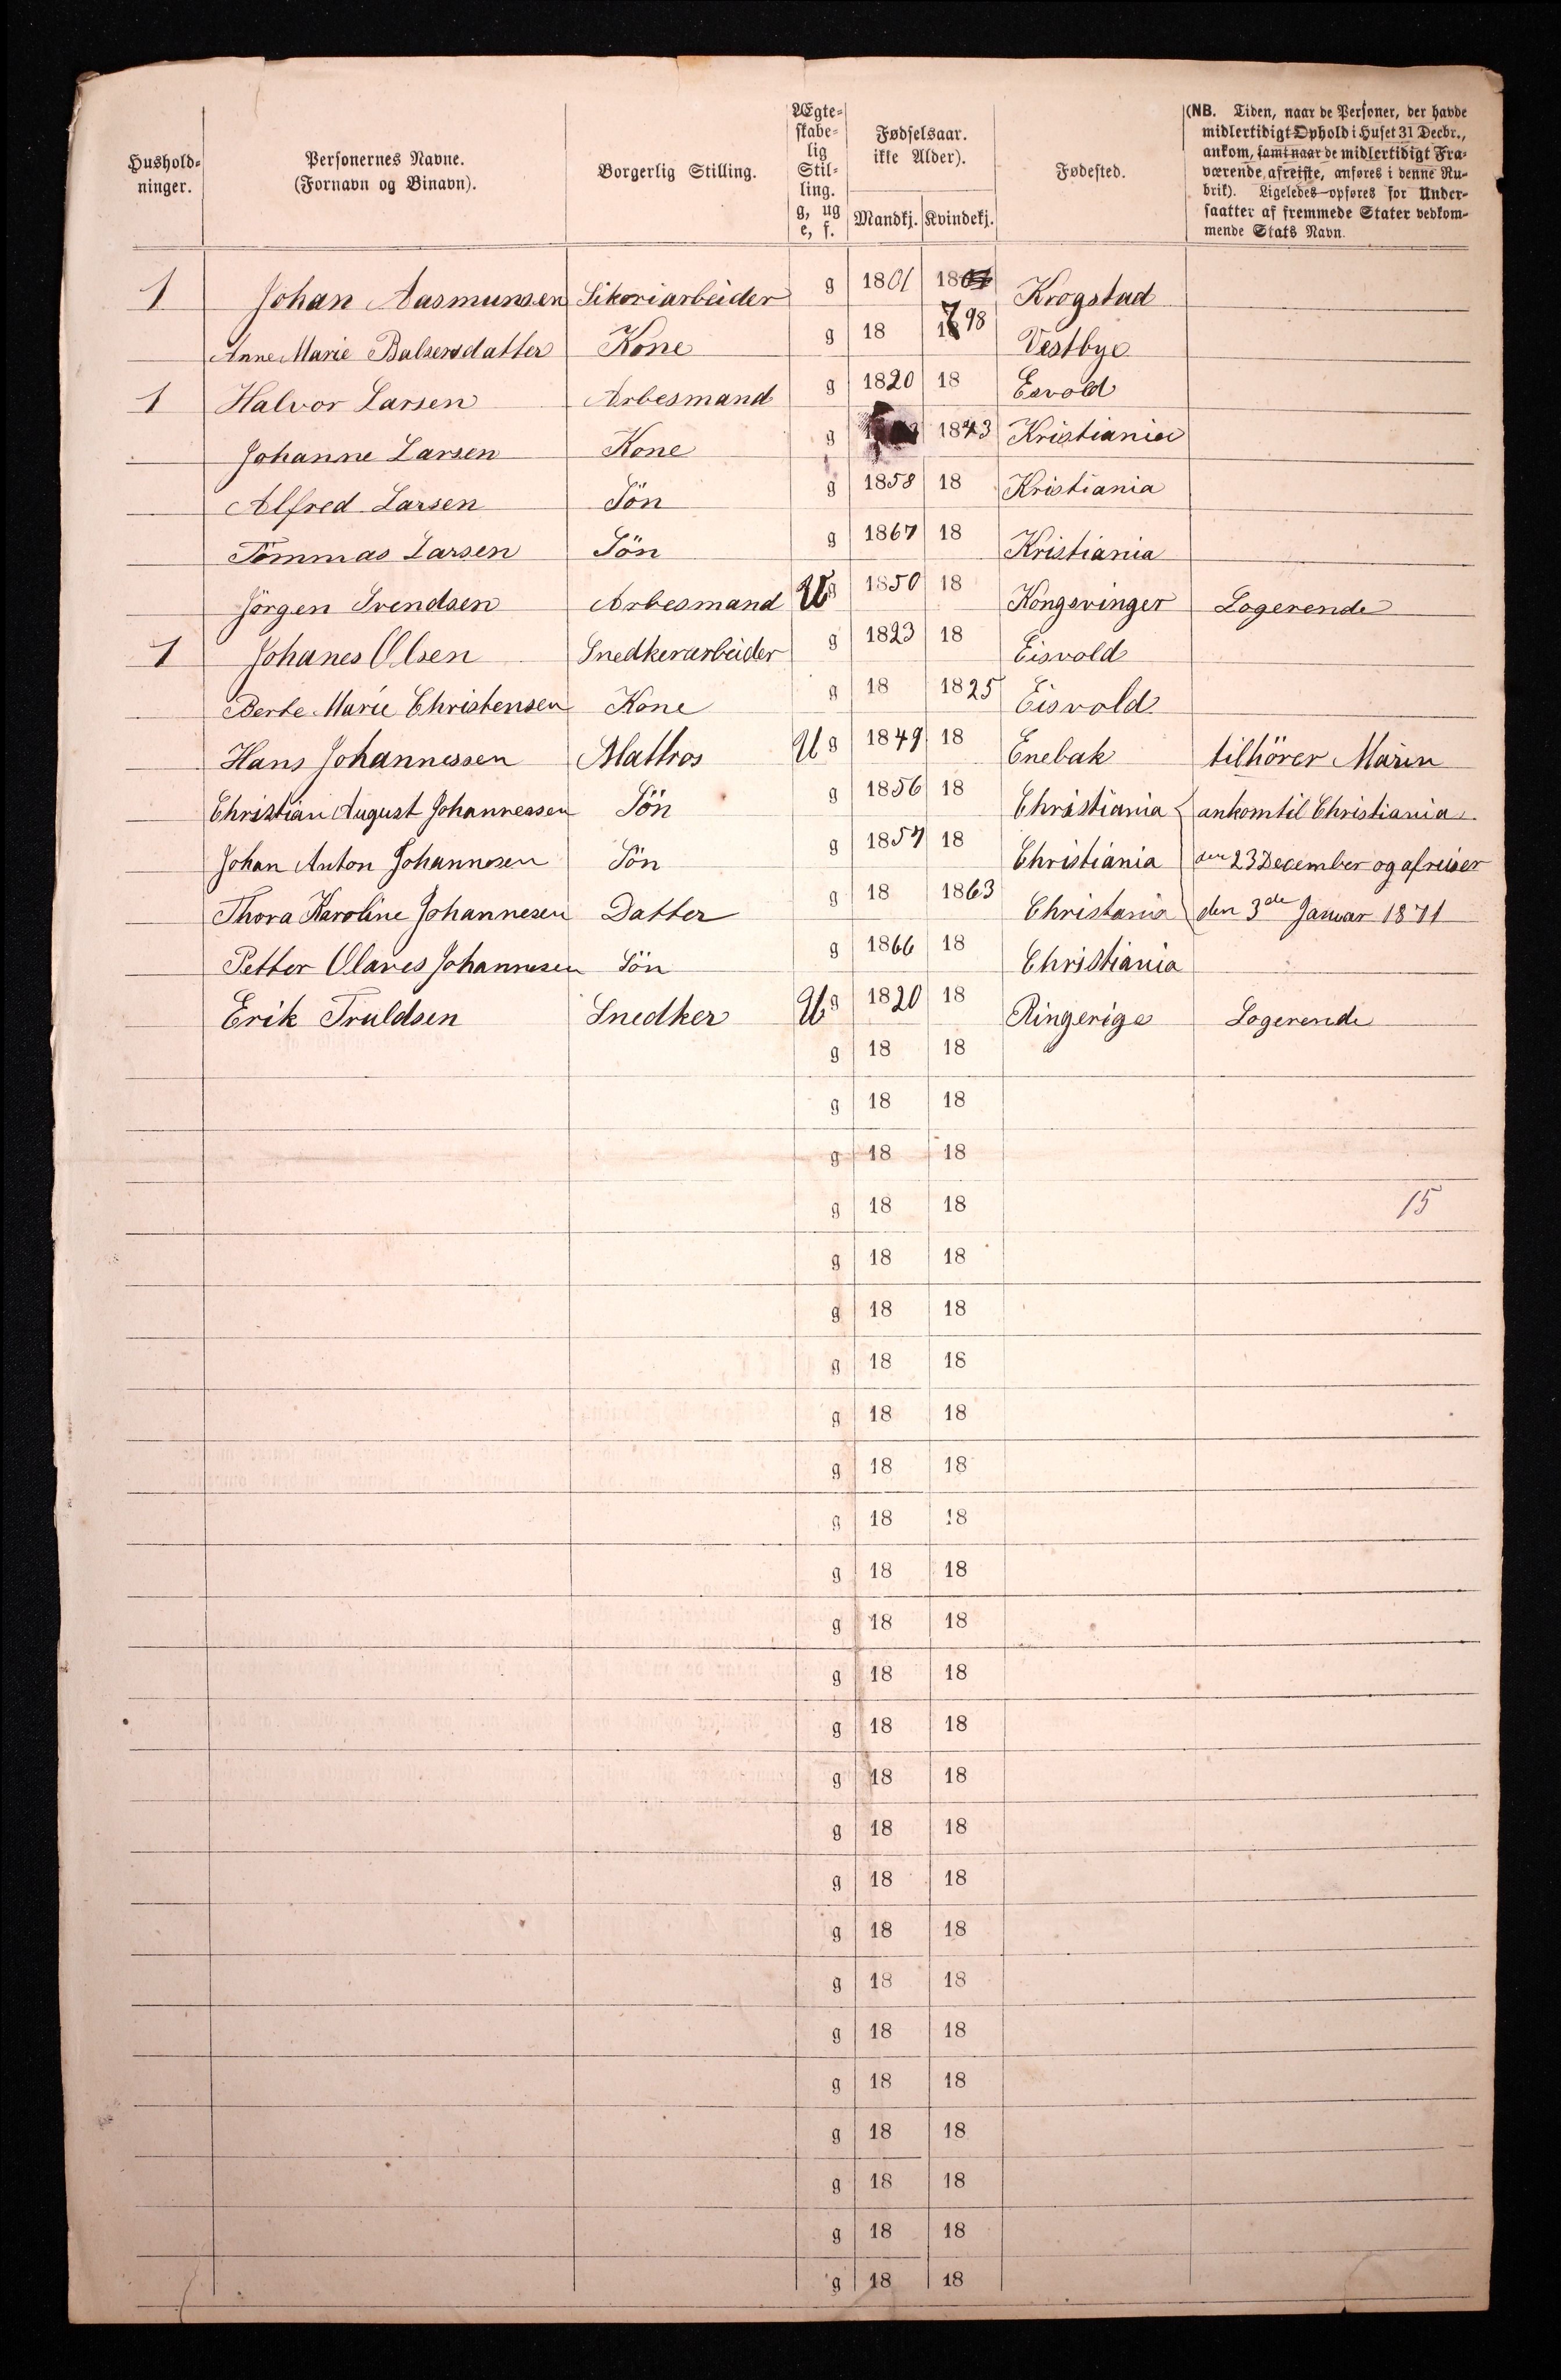 Hushold-
ninger.
Personernes Navne.
(Fornavn og Binavn).
Borgerlig Stilling.
Ægte-
skabe-
lig
Stil-
ling.
g, ug
e, f.
Fødselsaar.
ikke Alder).
Mandkj. Kvindekj.
Fødested.
(NB. Tiden, naar de Personer, der havde
midlertidigt Ophold i Huset 31 Decbr.,
ankom, samt naar de midlertidigt Fra-
værende afreiste, anføres i denne Ru-
brik). Ligeledes opføres for Under-
saatter af fremmede Stater vedkom-
mende Stats Navn.
1 Johan Aasmunsen Sikoriarbeider g 1801 18 Krogstad
Anne Marie Balsersdatter Kone g 18 1798 Vestbye
1 Halvor Larsen Arbesmand g 1820 18 Esvold
Johanne Larsen Kone g 1843 Kristiania
Alfred Larsen Sön g 1858 18 Kristiania
Tömmas Larsen Sön g 1867 18 Kristiania
Jörgen Svendsen Arbesmand Ug 1850 18 Kongsvinger Logerende
1 Johanes Olsen Snedkerarbeider g 1823 18 Eisvold
Berte Marie Christensen Kone g 18 1825 Eisvold
Hans Johannessen Mattros Ug 1849 18 Enebak tilhörer Marin
Christian August Johannessen Sön g 1856 18 Christiania ankomtil Christiania
Johan Anton Johannesen Sön g 1857 18 Christiania den 23 December og afreiser
Thora Karoline Johannesen Datter g 18 1863 Christania den 3de Januar 1871
Petter Olaves Johannesen Sön g 1866 18 Christiania
Erik Truldsen Snedker Ug 1820 18 Ringerige Logerende
g 18 18
g 18 18
g 18 18
g 18 18 15
g 18 18
g 18 18
g 18 18
g 18 18
g 18 18
g 18 18
g 18 18
g 18 18
g 18 18
g 18 18
g 18 18
g 18 18
g 18 18
g 18 18
g 18 18
g 18 18
g 18 18
g 18 18
g 18 18
g 18 18
g 18 18